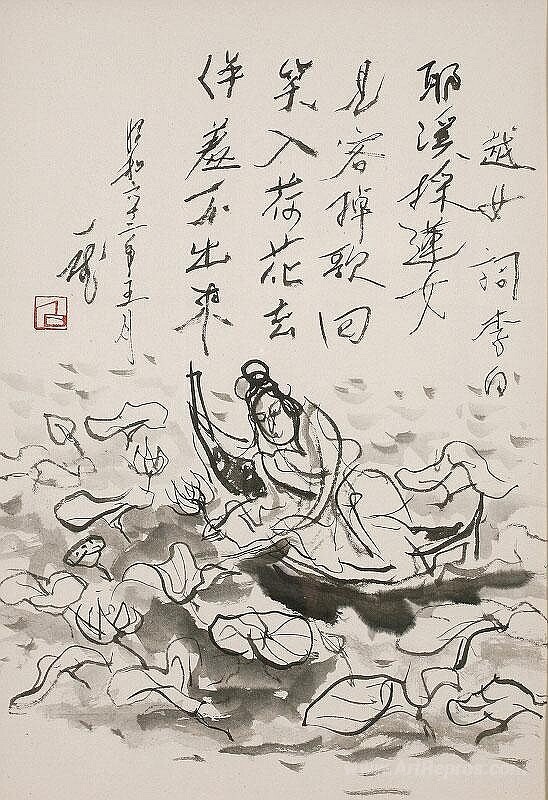 越女詞 李白
耶溪採蓮女
見客掉歌回
笑入荷花去
佯羞不出来
昭和六十二年五月
www.ArtRepros.com